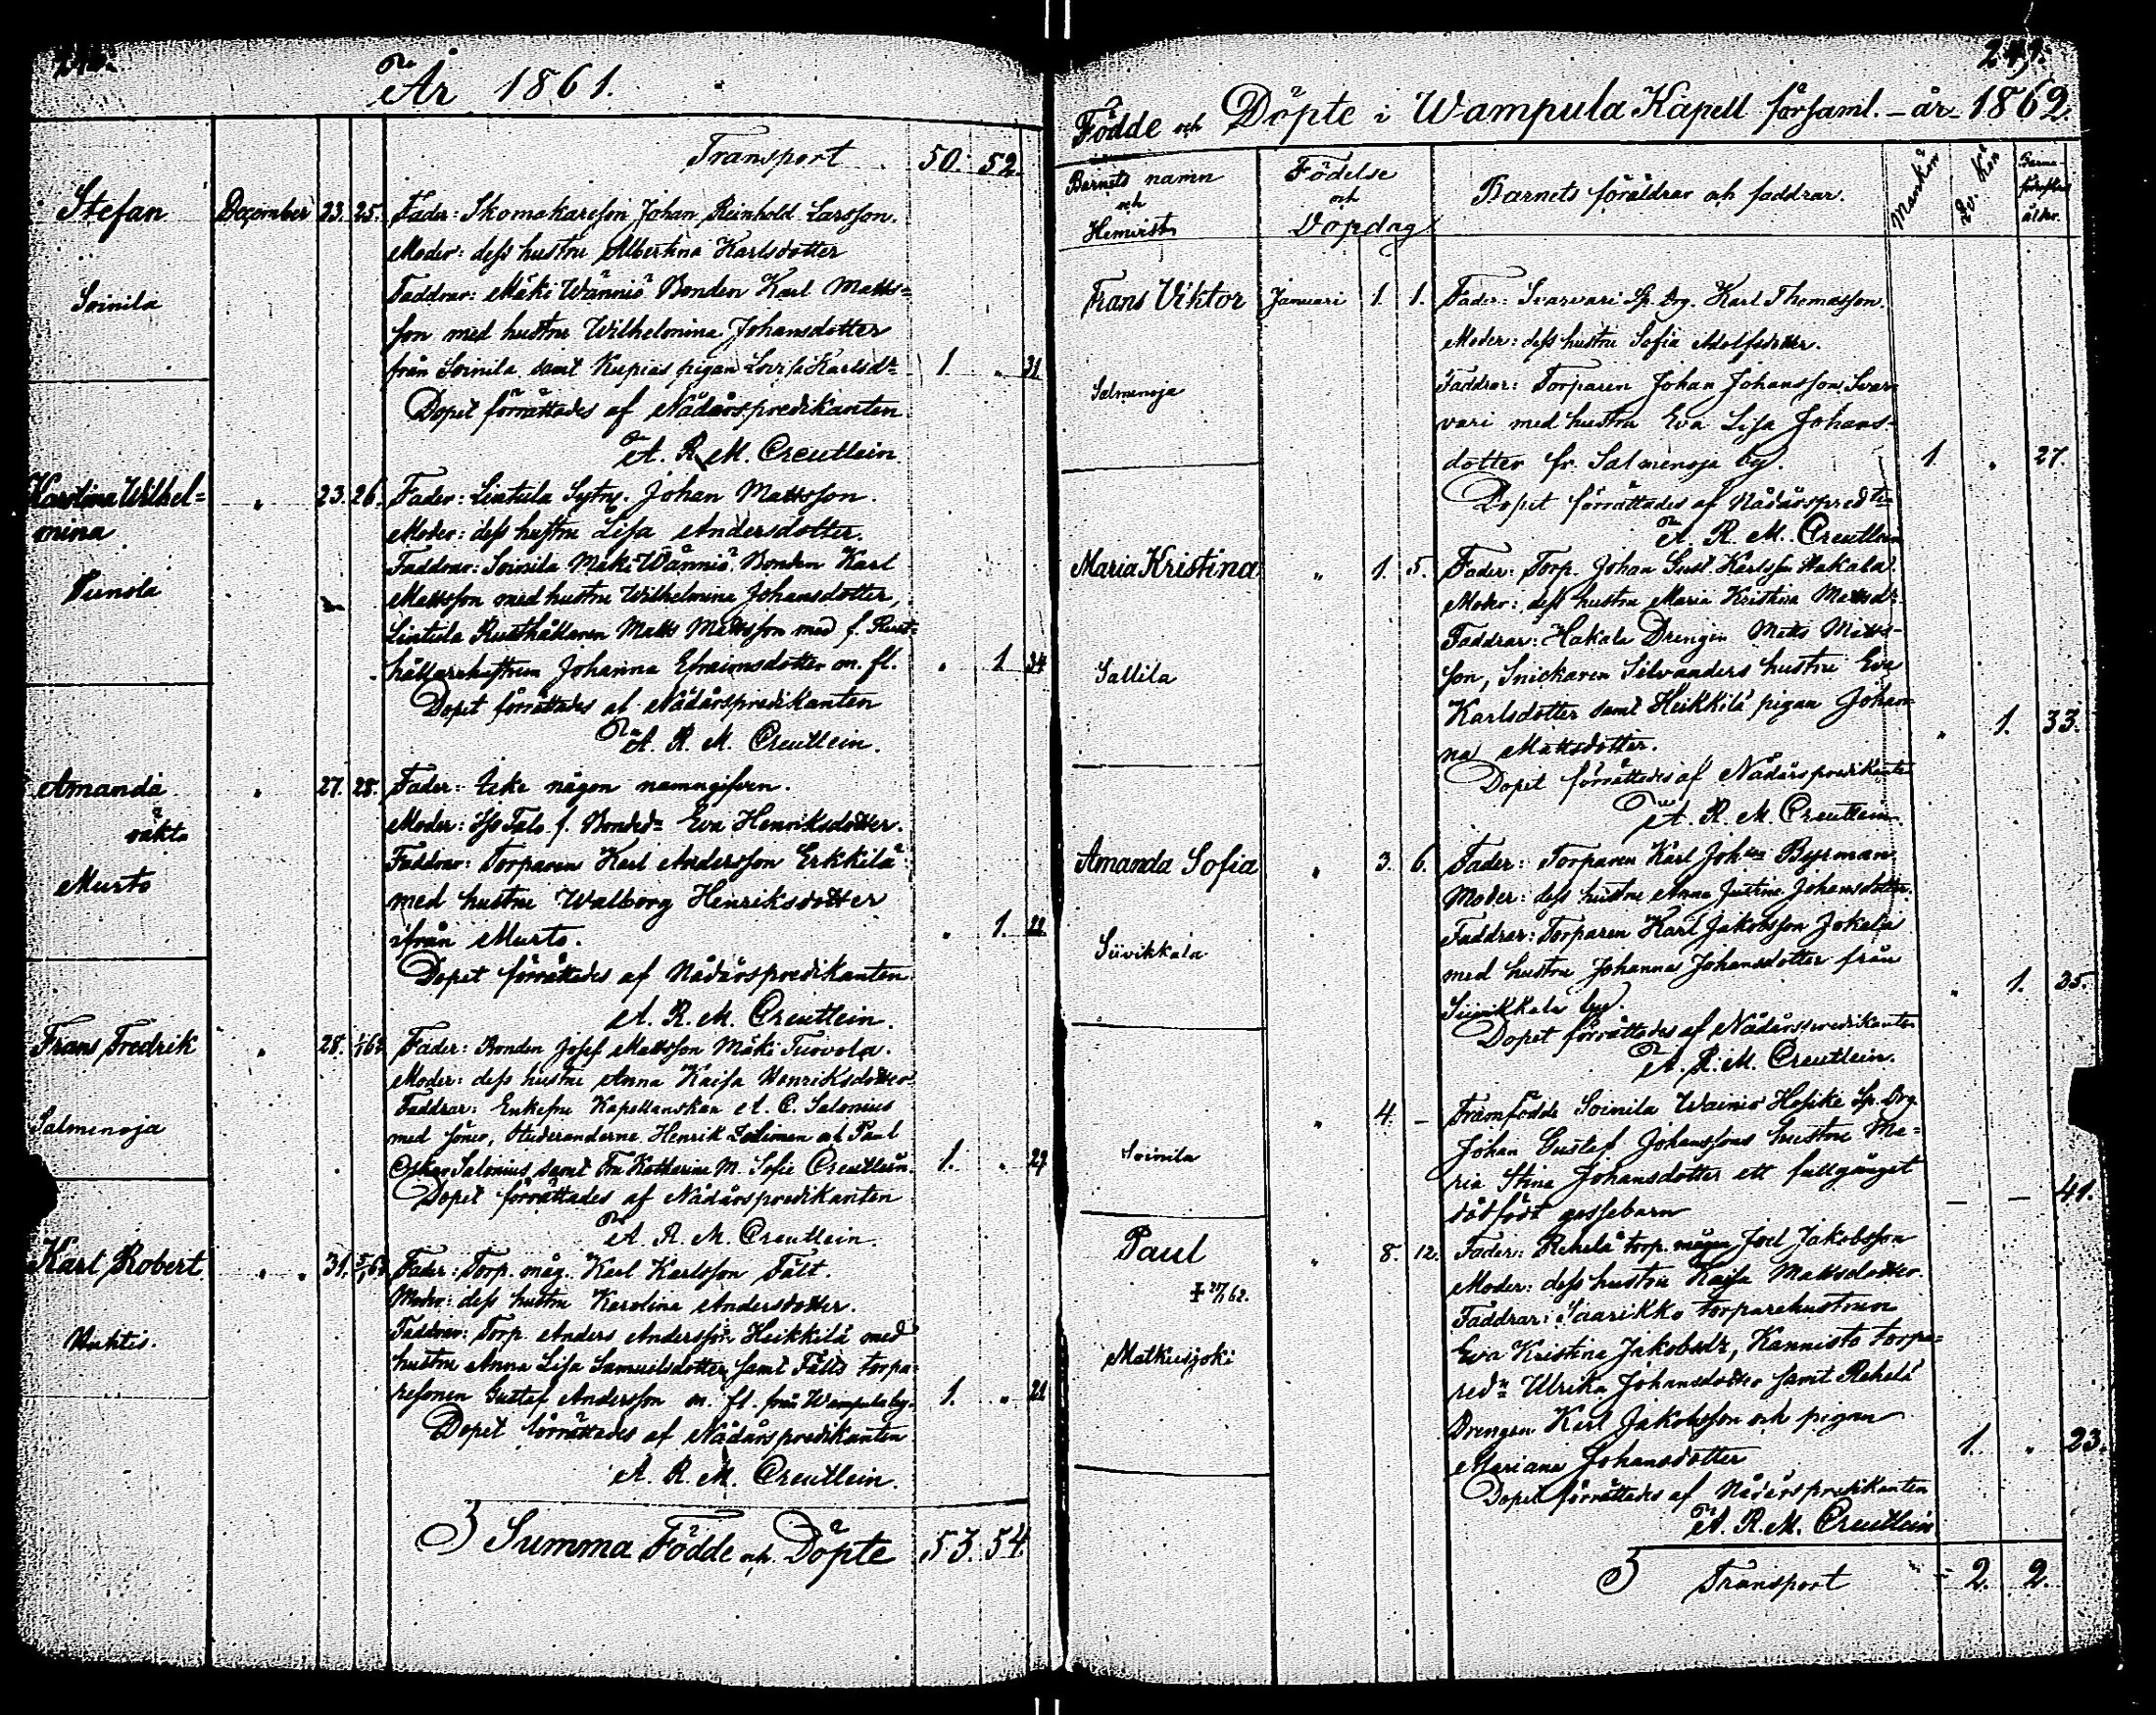 År 1861.
Transport 50. 52.
Stefan December 23. 25. Fader: Skomakaresson Johan Reinhold Larsson.
Moder: dess hustru Albertina Karlsdotter
Soinila
Faddrar: Mäki Wänniö Bonden Karl Matts=
son med hustru Wilhelmina Johansdotter
från Soinila samt Kupias pigan Lovisa Karlsdr 1. „ 31
Dopet förrättades af Nådårspredikanten
A. R. M. Creutlein.
Karolina Wilhel=
mina
„ 23. 26. Fader: Lintula Sytng. Johan Mattsson.
Moder: dess hustru Lisa Andersdotter.
Faddrar: Soinila Mäki Wänniö Bonden Karl
Mattsson med hustru Wilhelmina Johansdotter,
Lintula Rusthållaren Matts Mattsson med f. Rust=
hållarehustrun Johanna Efraimsdotter m. fl. „ 1 34
Dopet förrättades af Nådårspredikanten
A. R. M. Creutlein.
Amanda
oäkta
Murto
„ 27. 28. Fader: Icke någon namngifven.
Moder: Iso Talo f. Bonded. Eva Henriksdotter.
Faddrar: Torparen Karl Andersson Erkkilä
med hustru Walborg Henriksdotter
ifrån Murto. „ 1. 22
Dopet förrättades af Nådårspredikanten
A. R. M. Creutlein.
Frans Fredrik „ 28. 1/1 62 Fader: Bonden Josef Mattsson Mäki Tuovola.
Moder: dess hustru Anna Kaisa Henriksdotter
Salmenoja
Faddrar: Enkefru Kapellanskan A. C. Salonius
med söner, Studeranderne Henrik och Paul
Oskar Salonius, samt Fru Katharina M. Sofie Creutlein. 1. „ 27
Dopet förrättades af Nådårspredikanten
A. R. M. Creutlein.
Karl Robert „ „ 31. 5/1 62 Fader: Torp. måg. Karl Karlsson Fält.
Moder: dess hustru Karolina Andersdotter.
Huhtis.
Faddrar: Torp. Anders Andersson Heikkilä med
hustru Anna Lisa Samuelsdotter, samt Fälts torpa=
resonen Gustaf Andersson m. fl. från Wampula by. 1. „ 21
Dopet förrättades af Nådårspredikanten
A. R. M. Creutlein.
Summa Födde och Döpte 53. 54.
241.
Födde och Döpte i Wampula Kapell församl. - år - 1862.
Barnets namn
och
Hemvist
Födelse
och
Dopdag
Barnets föräldrar och faddrar.
Mankön
Qv. Kön
Barna-
föderskans
ålder.
Frans Viktor Januari 1. 1. Fader: Svarvari Sp. Drg. Karl Thomasson.
Moder: dess hustru Sofia Adolfsdotter.
Salmenoja
Faddrar: Torparen Johan Johansson Svar=
vari med hustru Eva Lisa Johans-
dotter fr. Salmenoja by. 1. „ 27.
Dopet förrättades af Nådårspredten
A. R. M. Creutlein
Maria Kristina „ 1. 5. Fader: Torp. Johan Gust. Karlsson Hakala.
Moder: dess hustru Maria Kristina Mattsdr
Sallila
Faddrar: Hakala Drengen Matts Matts-
son, Snickaren Silvanders hustru Eva
Karlsdotter samt Heikkilä pigan Johan=
na Mattsdotter. „ 1. 33.
Dopet förrättades af Nådårspredikanten
A. R. M. Creutlein.
Amanda Sofia „ 3. 6. Fader: Torparen Karl Johan Byrman
Moder: dess hustru Anna Justina Johansdotter.
Siivikkala
Faddrar: Torparen Karl Jakobsson Jokela
med hustru Johanna Johansdotter från
Siivikkala by. „ 1. 35.
Dopet förrättades af Nådårspredikanten
A. R. M. Creutlein.
„ 4. – Framfödde Soinila Wainio Hosike Sp. Drg.
Soinila
Johan Gustaf Johanssons hustru Ma=
ria Stina Johansdotter ett fullgånget
dödfödt gossebarn – – 41.
Paul „ 8. 12. Fader: Rehelä torp. mågen Joel Jakobsson
62.
Moder: dess hustru Kaisa Mattsdotter.
Matkusjoki
Faddrar: Saarikko torparehustrun
Eva Kristina Jakobsdr, Kannisto torpa=
red. Ulrika Johansdotter samt Rehelä
Drengen Karl Jakobsson och pigan
Mariana Johansdotter 1. „ 23.
Dopet förrättades af Nådårspredikanten
A. R. M. Creutlein
Transport 2. 2.